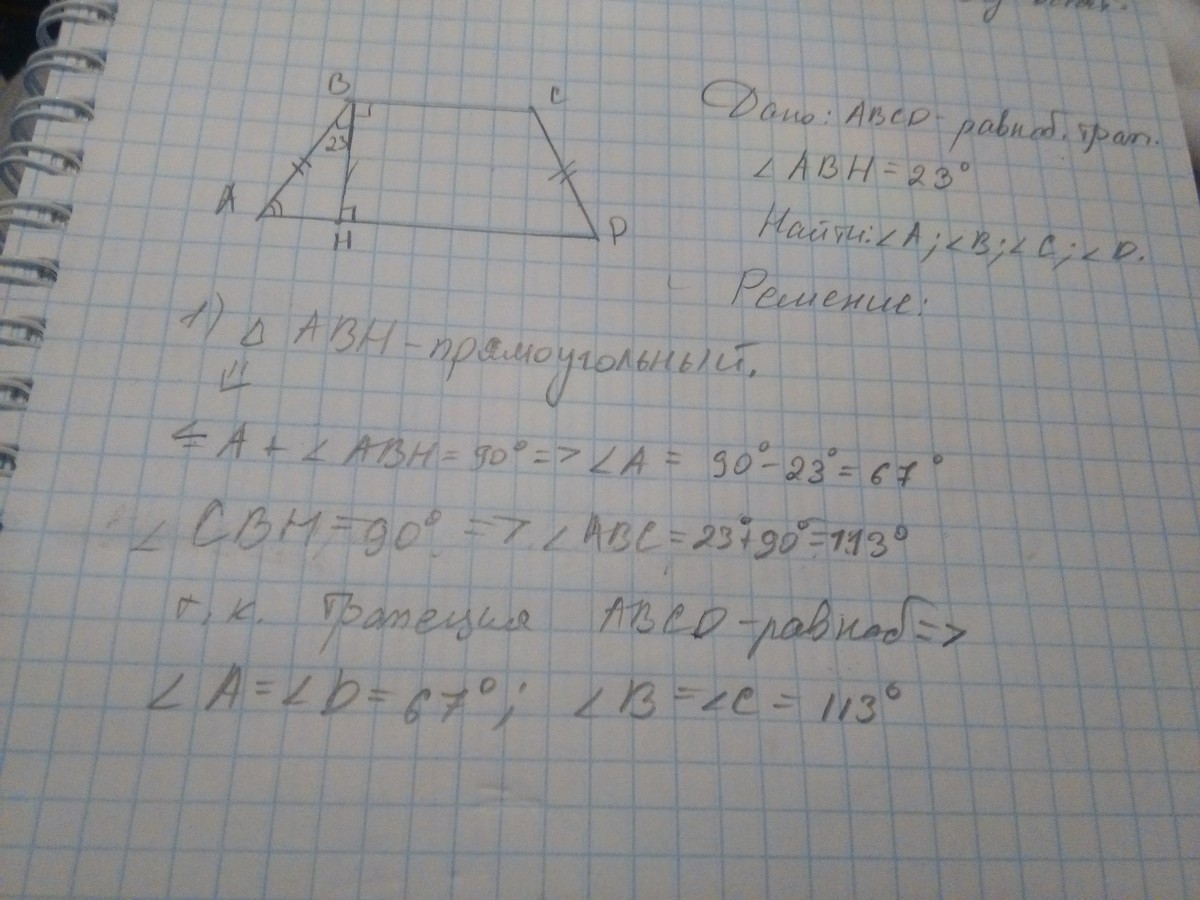 B
C
23
A
H
D
Дано: ABCD - равноб. трап.
∠ ABH = 23°
Найти: ∠A; ∠B; ∠C; ∠D.
Решение:
1) Δ ABH - прямоугольный.
⇓
∠ A + ∠ ABH = 90° => ∠A = 90° - 23° = 67°
∠ CBH = 90° => ∠ABC = 23°+90°=113°
т. к. трапеция ABCD - равноб =>
∠ A = ∠D = 67°; ∠B = ∠C = 113°